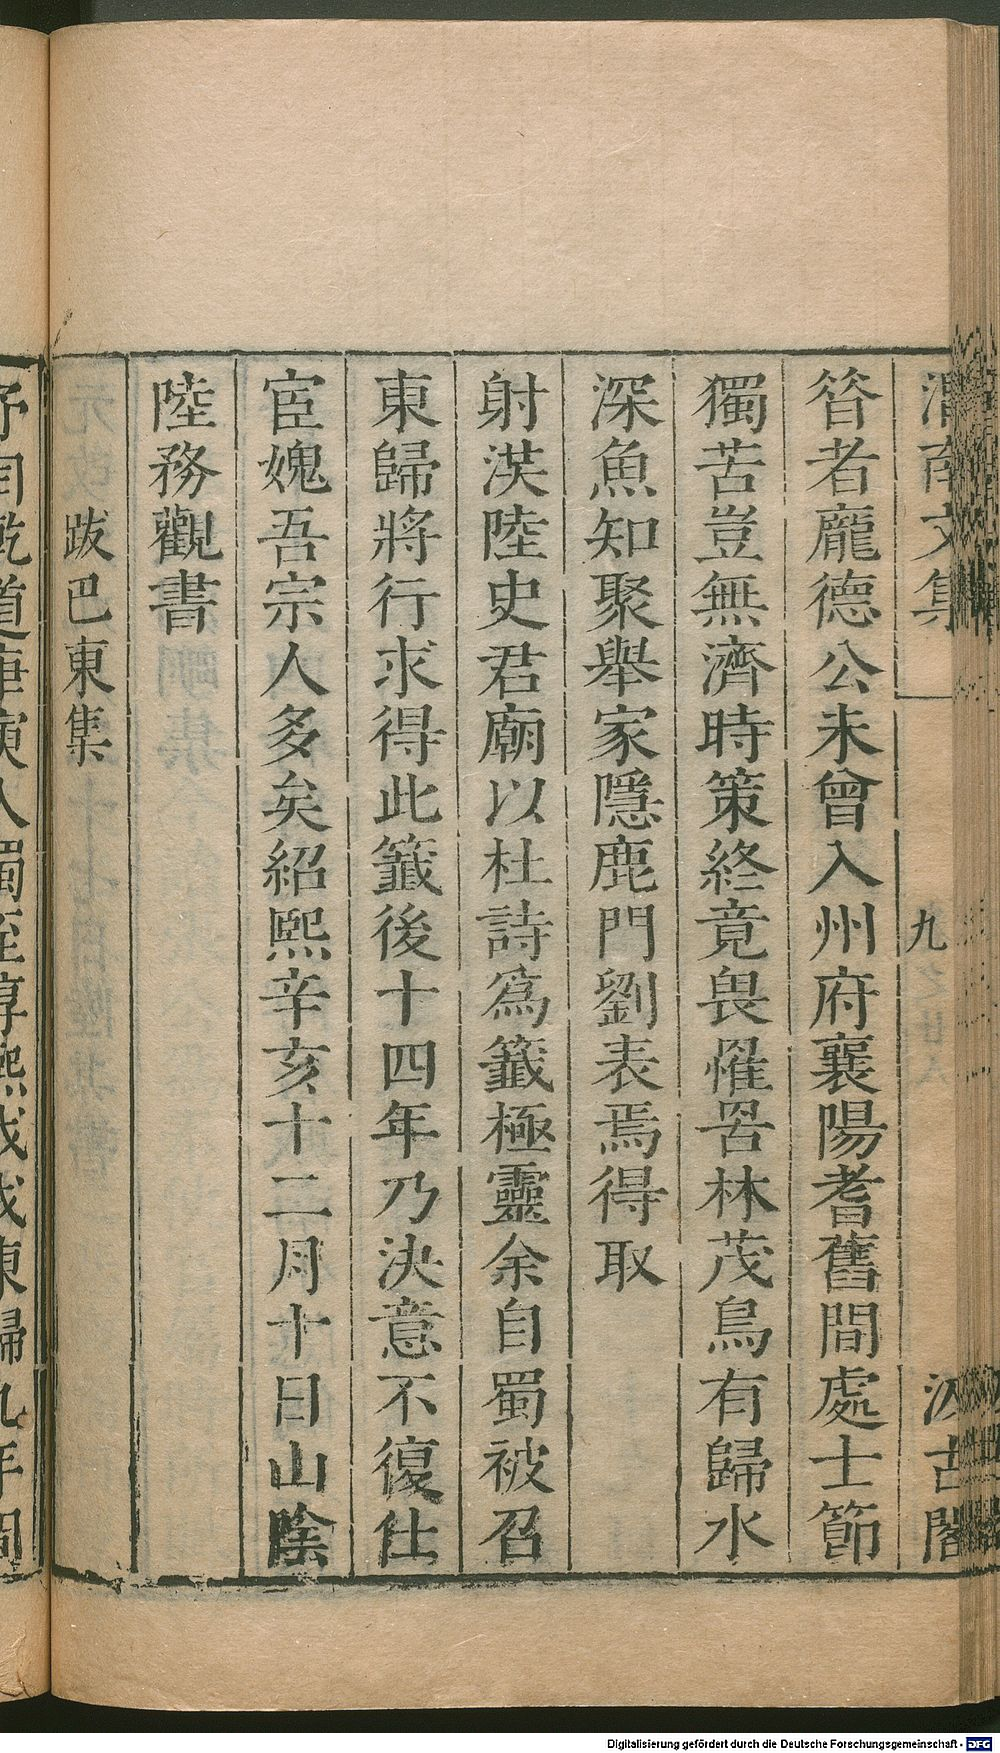 渭南文集
九
汲古閣
昝者龐德公未曾入州府襄陽耆舊間處士節
獨苦豈無濟時策終竟畏罹罟林茂鳥有歸水
深魚知聚舉家隱鹿門劉表焉得取
射洪陸史君廟以杜詩爲籤極靈余自蜀被召
東歸將行求得此籤後十四年乃決意不復仕
宦媿吾宗人多矣紹熙辛亥十二月十日山陰
陸務觀書
跋巴東集
予自乾道庚寅入蜀至淳熙戊戌東歸九年間
Digitalisierung gefördert durch die Deutsche Forschungsgemeinschaft - DFG